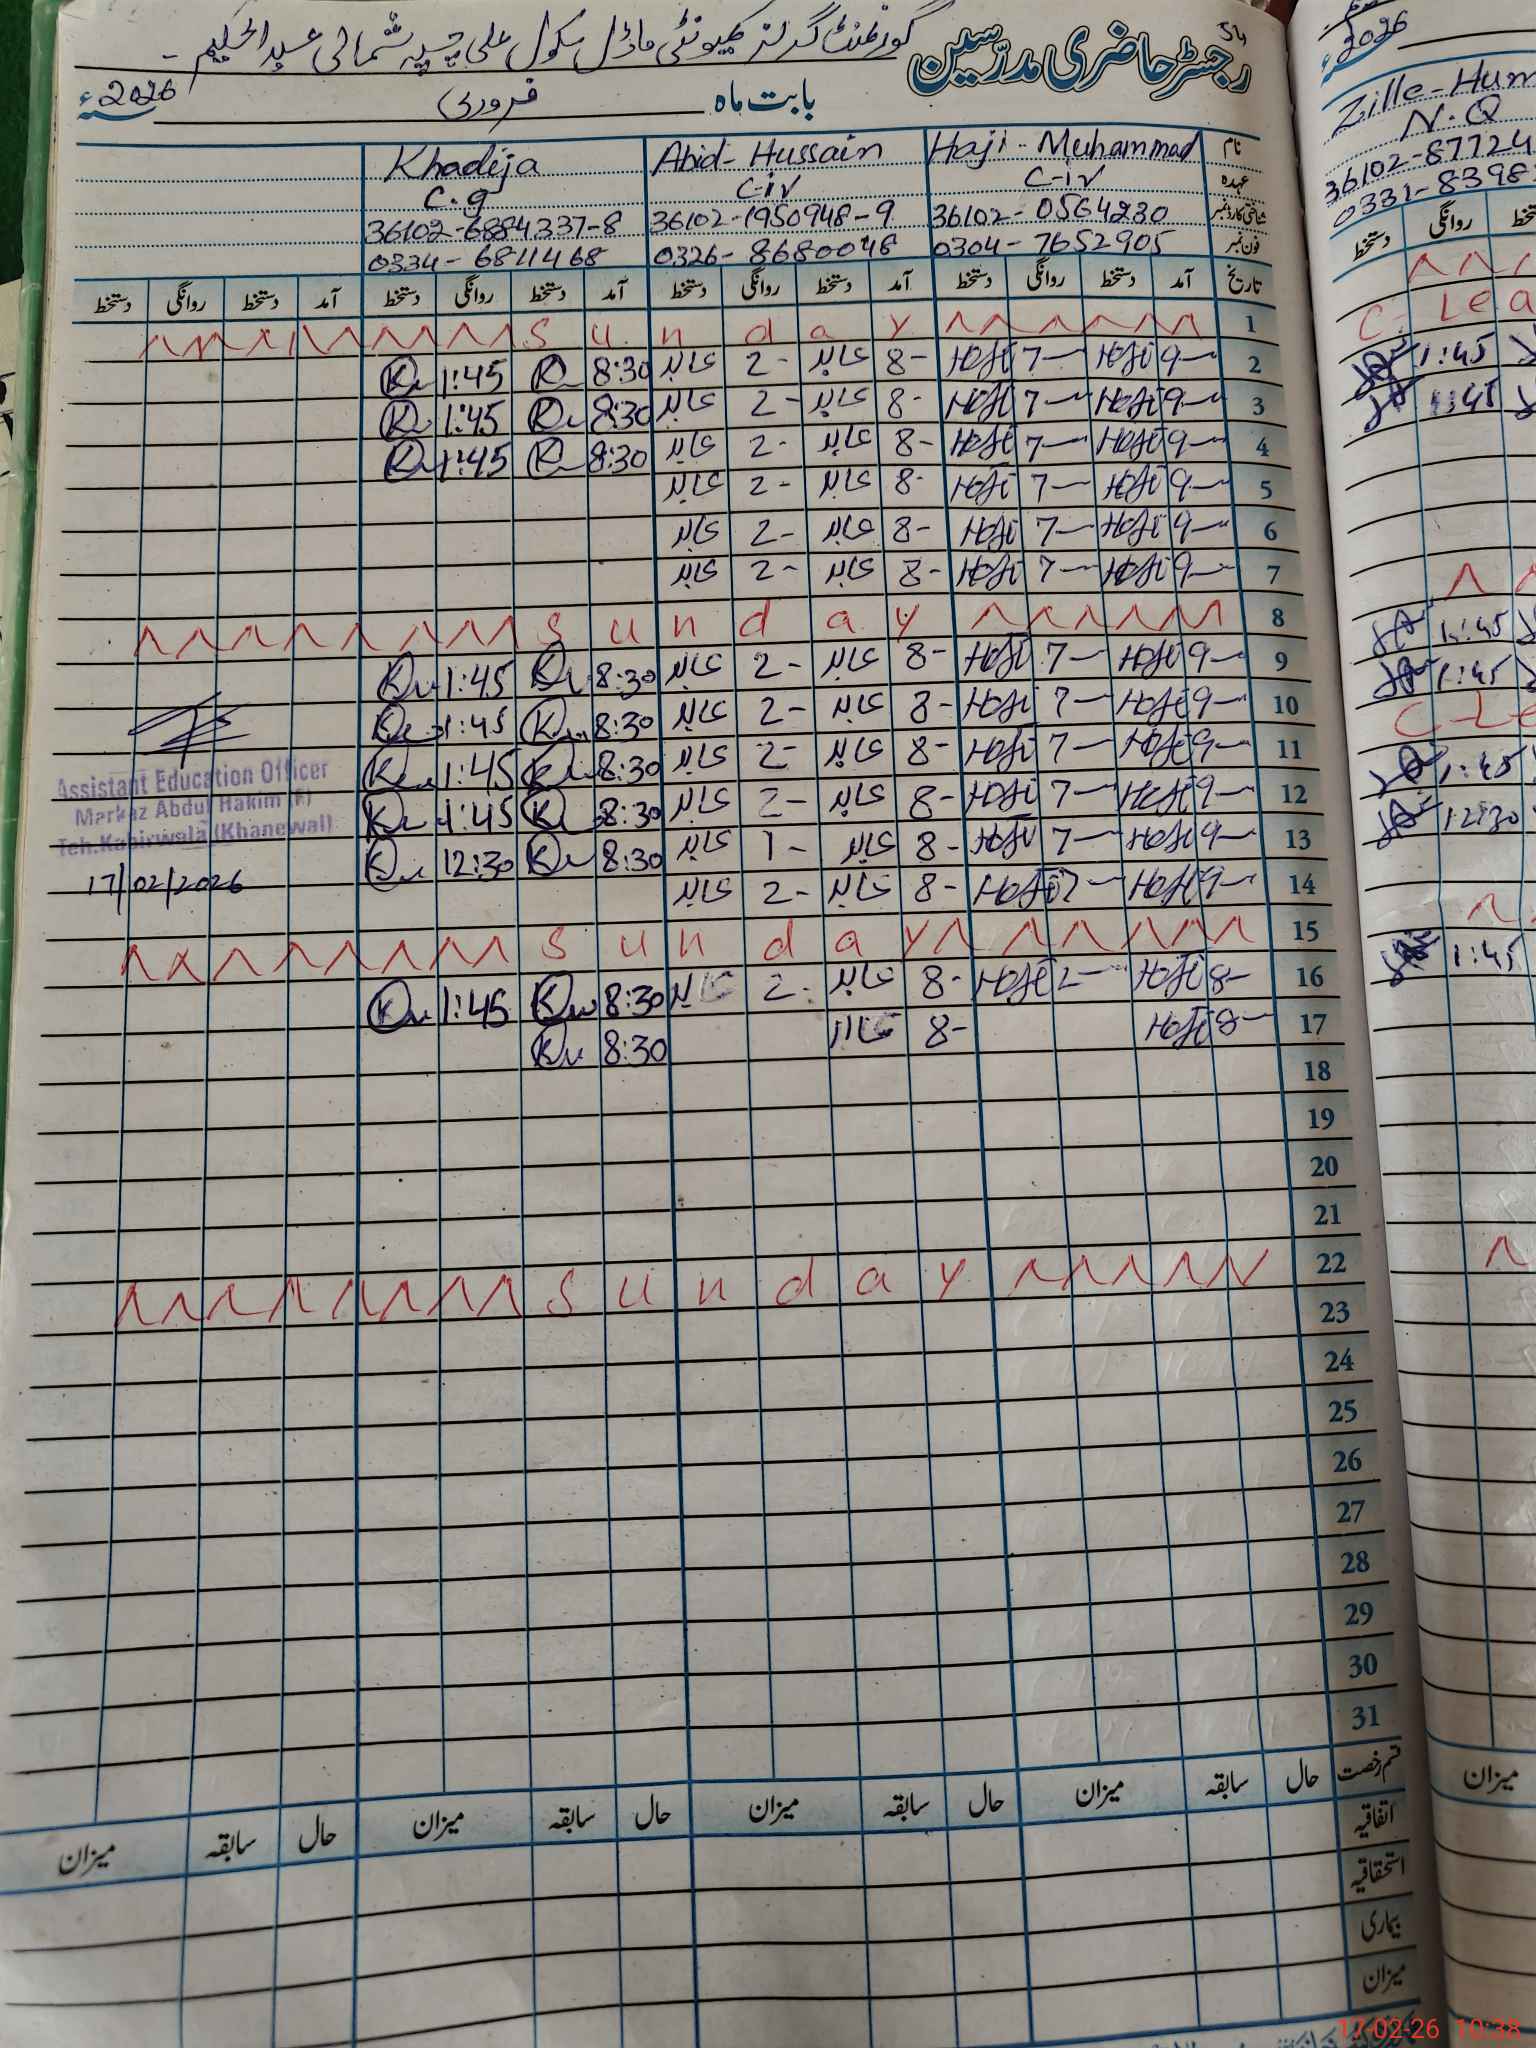 رجسٹر حاضری مدرّسین
گورنمنٹ گرلز کمیونٹی ماڈل سکول علی چپہ شمالی عبدالحکیم
بابت ماہ فروری 2026ء
نام Haji - Muhammad Abid - Hussain Khadija
عہدہ C-iv C-iv C.g
شناختی کارڈ نمبر 36102-0564230 36102-1950948-9 36102-6884337-8
فون نمبر 0304-7652905 0326-8680048 0334-6811468
تاریخ آمد دستخط روانگی دستخط آمد دستخط روانگی دستخط آمد دستخط روانگی دستخط آمد دستخط روانگی دستخط
1 Sunday
2 9- Haji 7- Haji 8- عابد 2- عابد 8:30 1:45
3 9- Haji 7- Haji 8- عابد 2- عابد 8:30 1:45
4 9- Haji 7- Haji 8- عابد 2- عابد 8:30 1:45
5 9- Haji 7- Haji 8- عابد 2- عابد
6 9- Haji 7- Haji 8- عابد 2- عابد
7 9- Haji 7- Haji 8- عابد 2- عابد
8 Sunday
9 9- Haji 7- Haji 8- عابد 2- عابد 8:30 1:45
10 9- Haji 7- Haji 8- عابد 2- عابد 8:30 1:45
11 9- Haji 7- Haji 8- عابد 2- عابد 8:30 1:45
12 9- Haji 7- Haji 8- عابد 2- عابد 8:30 1:45
13 9- Haji 7- Haji 8- عابد 1- عابد 8:30 12:30
14 9- Haji 7- Haji 8- عابد 2- عابد
15 Sunday
16 8- Haji 2- Haji 8- عابد 2- عابد 8:30 1:45
17 8- Haji 8- عابد 8:30
18
19
20
21
22 Sunday
23
24
25
26
27
28
29
30
31
Assistant Education Officer
Markaz Abdul Hakim (F)
Teh.Kabirwala (Khanewal)
17/02/2026
قسم رخصت حال سابقہ میزان حال سابقہ میزان حال سابقہ میزان حال سابقہ میزان
اتفاقیہ
استحقاقیہ
بیماری
میزان
2026ء
Zille-Hum
N.Q
36102-87724
0331-8398
روانگی دستخط
C-Lea
1:45
1:45
1:45
1:45
C-Le
1:45
12:30
1:45
میزان
17-02-26 10:38